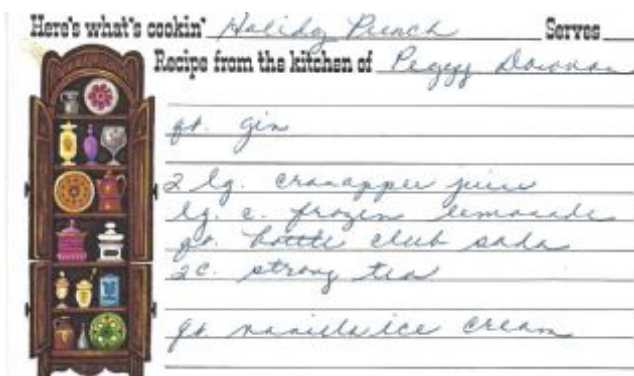 Here's what's cookin' Holiday Punch Serves
Recipe from the kitchen of Peggy Donovan
qt. gin
2 lg. cranapper juice
lg. c. frozen lemonade
qt. bottle club soda
2c. strong tea
qt. vanilla ice cream